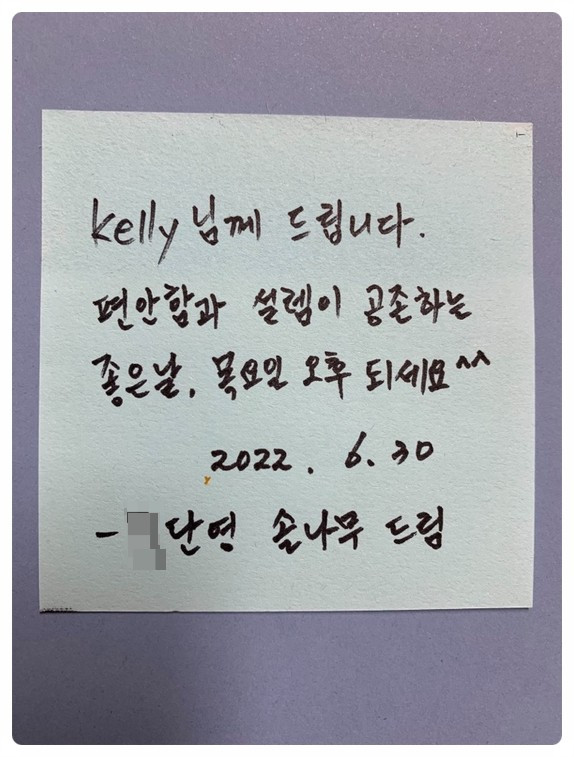 kelly님께 드립니다.
편안함과 설렘이 공존하는
좋은날, 목요일 오후 되세요^^
2022. 6. 30
- 단영 솔나무 드림